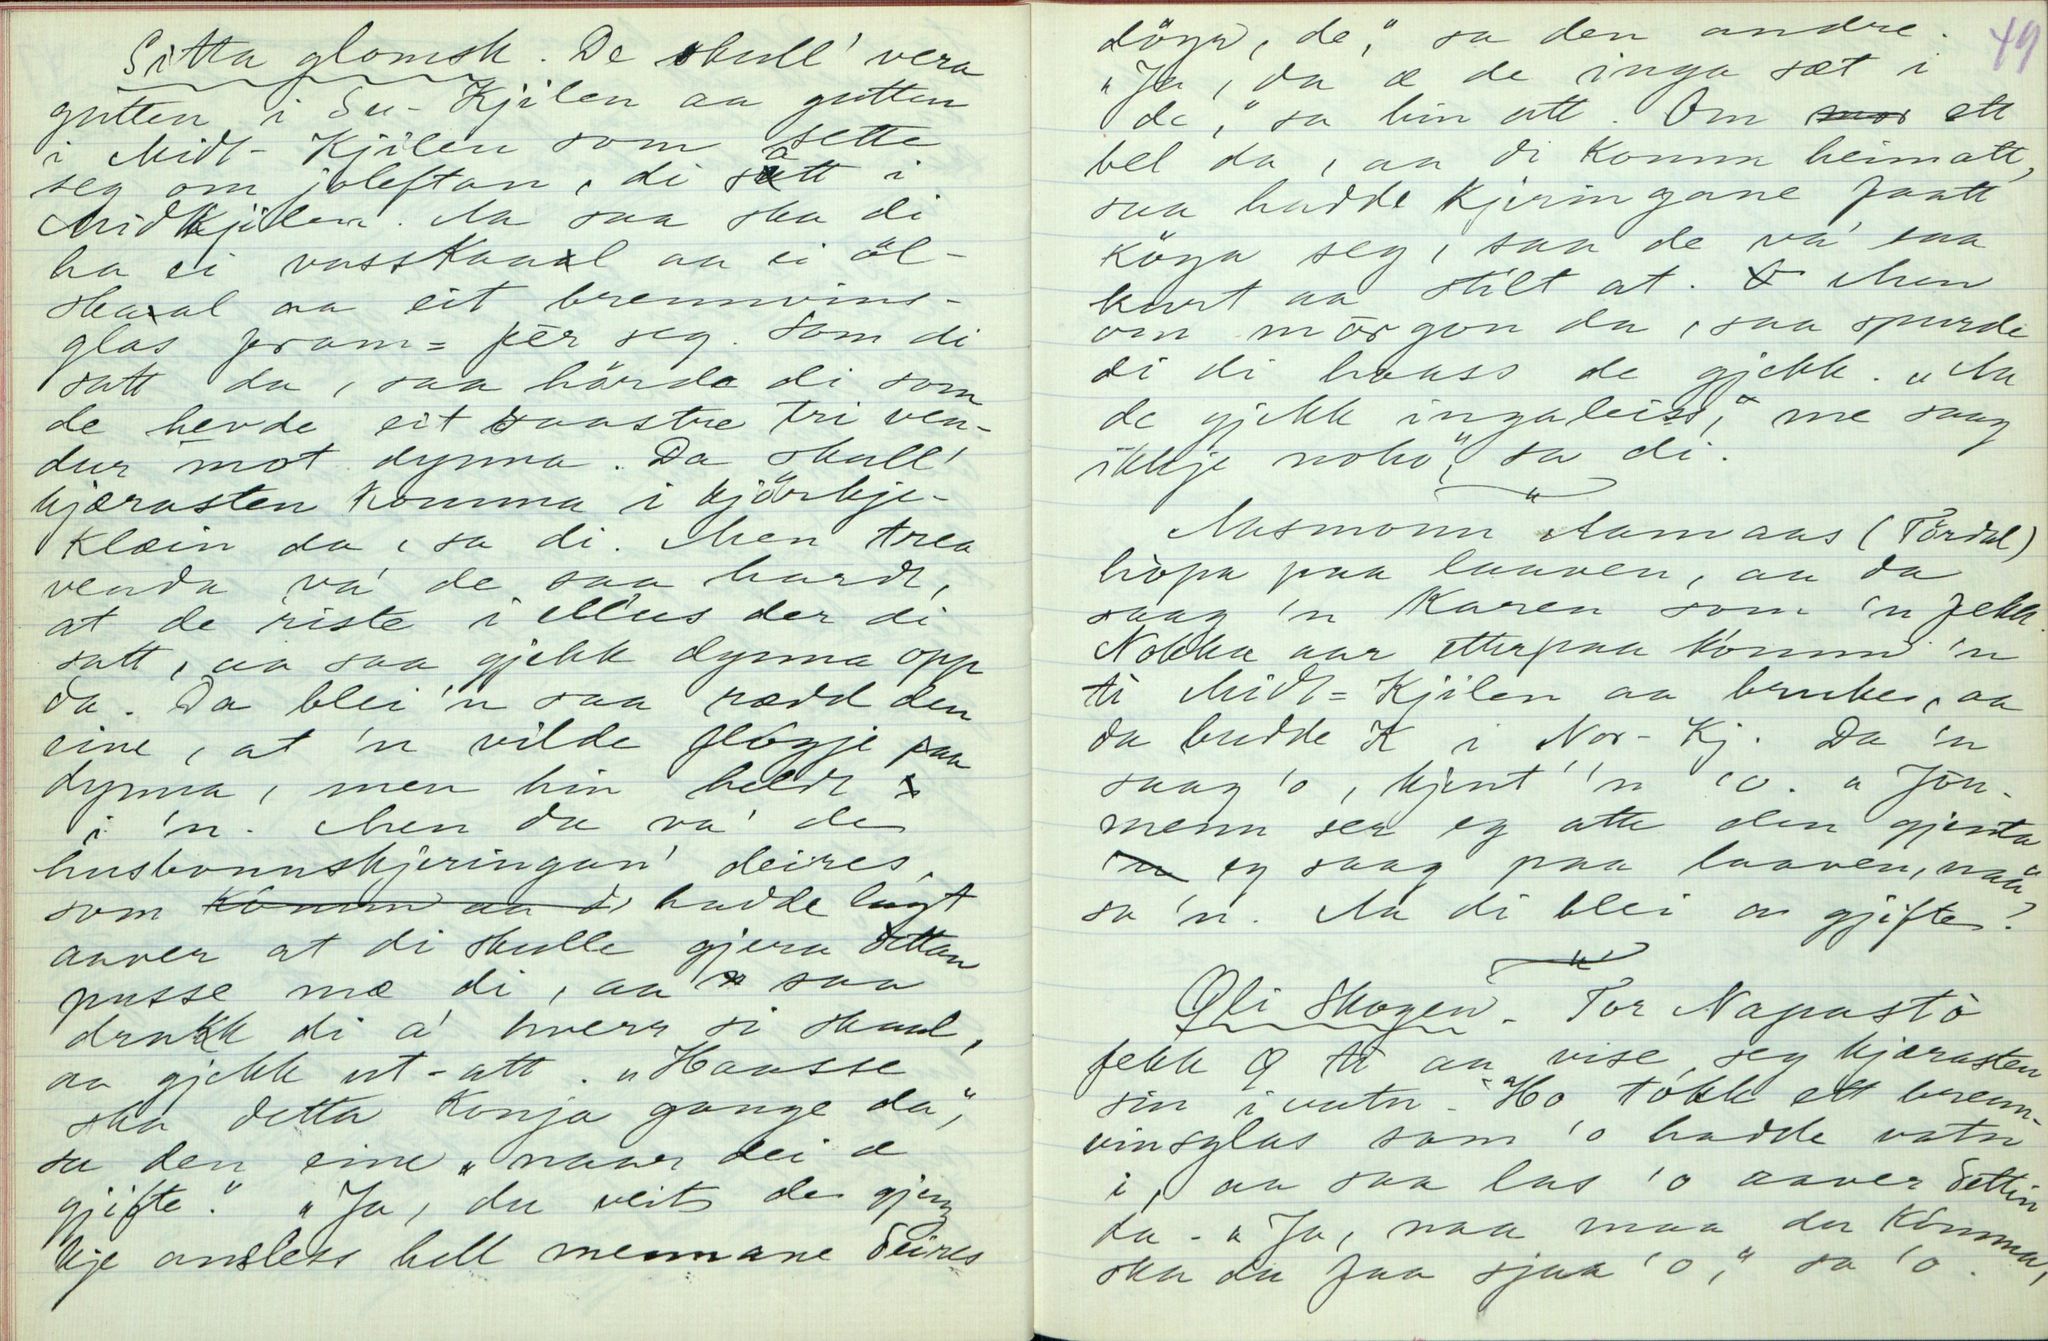 Sitta glomsk. De skull' vera
gutten i Su-Kjilen aa gutten
i Midt-Kjilen som sette
seg om joleftan, di satt i
Midtkjilen. Aa saa ska di
ha ei vasskaal aa ei öl-
skaal aa eit brennvins-
glas fram=fer seg. Som di
satt da, saa hörde di som
de hevde eit saastre tri ven-
dur mot dynna. Da skull'
kjærasten komma i kjörkje-
klæin da, sa di. Men trea
venda va' de saa hardt,
at de riste i Mus der di
satt, aa saa gjekk dynna opp
da. Da blei 'n saa rædd den
eine, at 'n vilde flögje paa
dynna, men hin heldt
i 'n. Men da va' de
husbonnskjeringan' deires,
som hadde lagt
aaver at di skulle gjera dettan
pusse mæ di, aa saa
drakk di a' hverr si skaal,
aa gjekk ut-att. „Haasse
ska detta konja gange da",
sa den eine „naar dei æ
gjifte." „Ja, du veit de gjeng
kje ansless hell mennane deires
49
döyr, de," sa den andre.
„Ja, da æ de inga sæt i
de," sa hin att. Om ett
bel da, aa di komm heimatt,
saa hadde kjeringane faatt
köya seg, saa de va' saa
kurt aa stilt at. Men
om mörgon da, saa spurde
di di haass de gjekk. „Aa
de gjekk ingaleiss, me saag
ikkje noko", sa di.
Aasmonn Aamaas (Tördal)
hopa paa laaven, aa da
saag 'n Karen som 'n fekk.
Nokka aar etterpaa komm 'n
ti Midt=Kjilen aa bruke, aa
da budde K i Nor-Kj. Da 'n
saag 'o, kjent' 'n 'o. „Jön-
menn ser eg atte den gjenta
eg saag paa laaven, naa"
sa 'n. Aa di blei gjifte.
Oli Skogen. Tor Napastö
fekk O ti aa vise seg kjærasten
sin i vatn. Ho tokk ett brenn-
vinsglas som 'o hadde vatn
i, aa saa las 'o aaver dettin
da. „Ja, naa maa du komma,
ska du faa sjaa 'o," sa 'o.